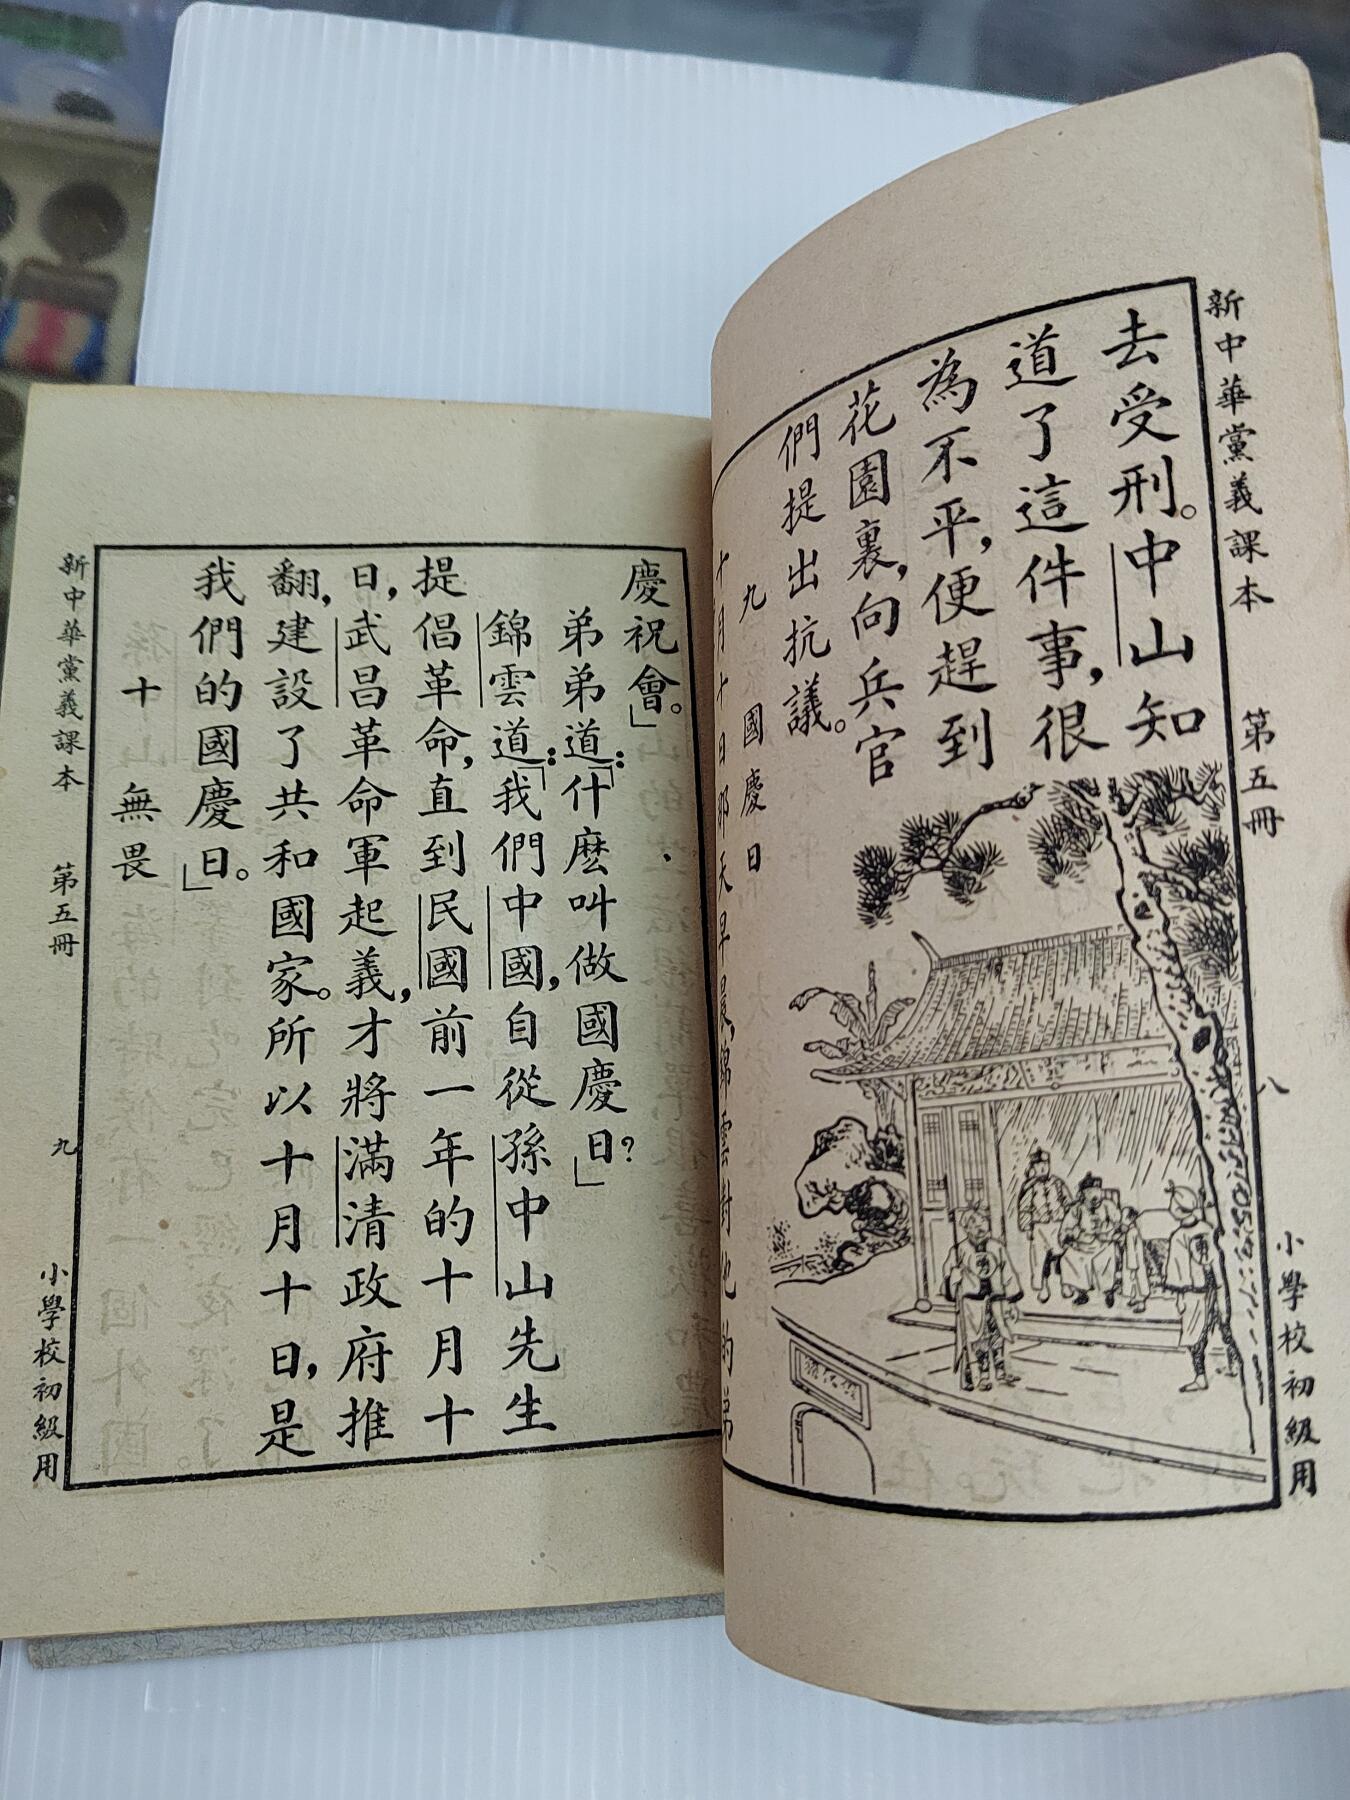 新中華黨義課本　第五冊　八　小學校初級用
去受刑。中山知
道了這件事，很
為不平，便趕到
花園裏，向兵官
們提出抗議。
九　國慶日
十月十日那天早晨，錦雲對他的弟
慶祝會。」
弟弟道：「什麽叫做國慶日？」
錦雲道：「我們中國，自從孫中山先生
提倡革命，直到民國前一年的十月十
日，武昌革命軍起義，才將滿清政府推
翻，建設了共和國家。所以十月十日，是
我們的國慶日。」
十　無畏
新中華黨義課本　第五冊　九　小學校初級用